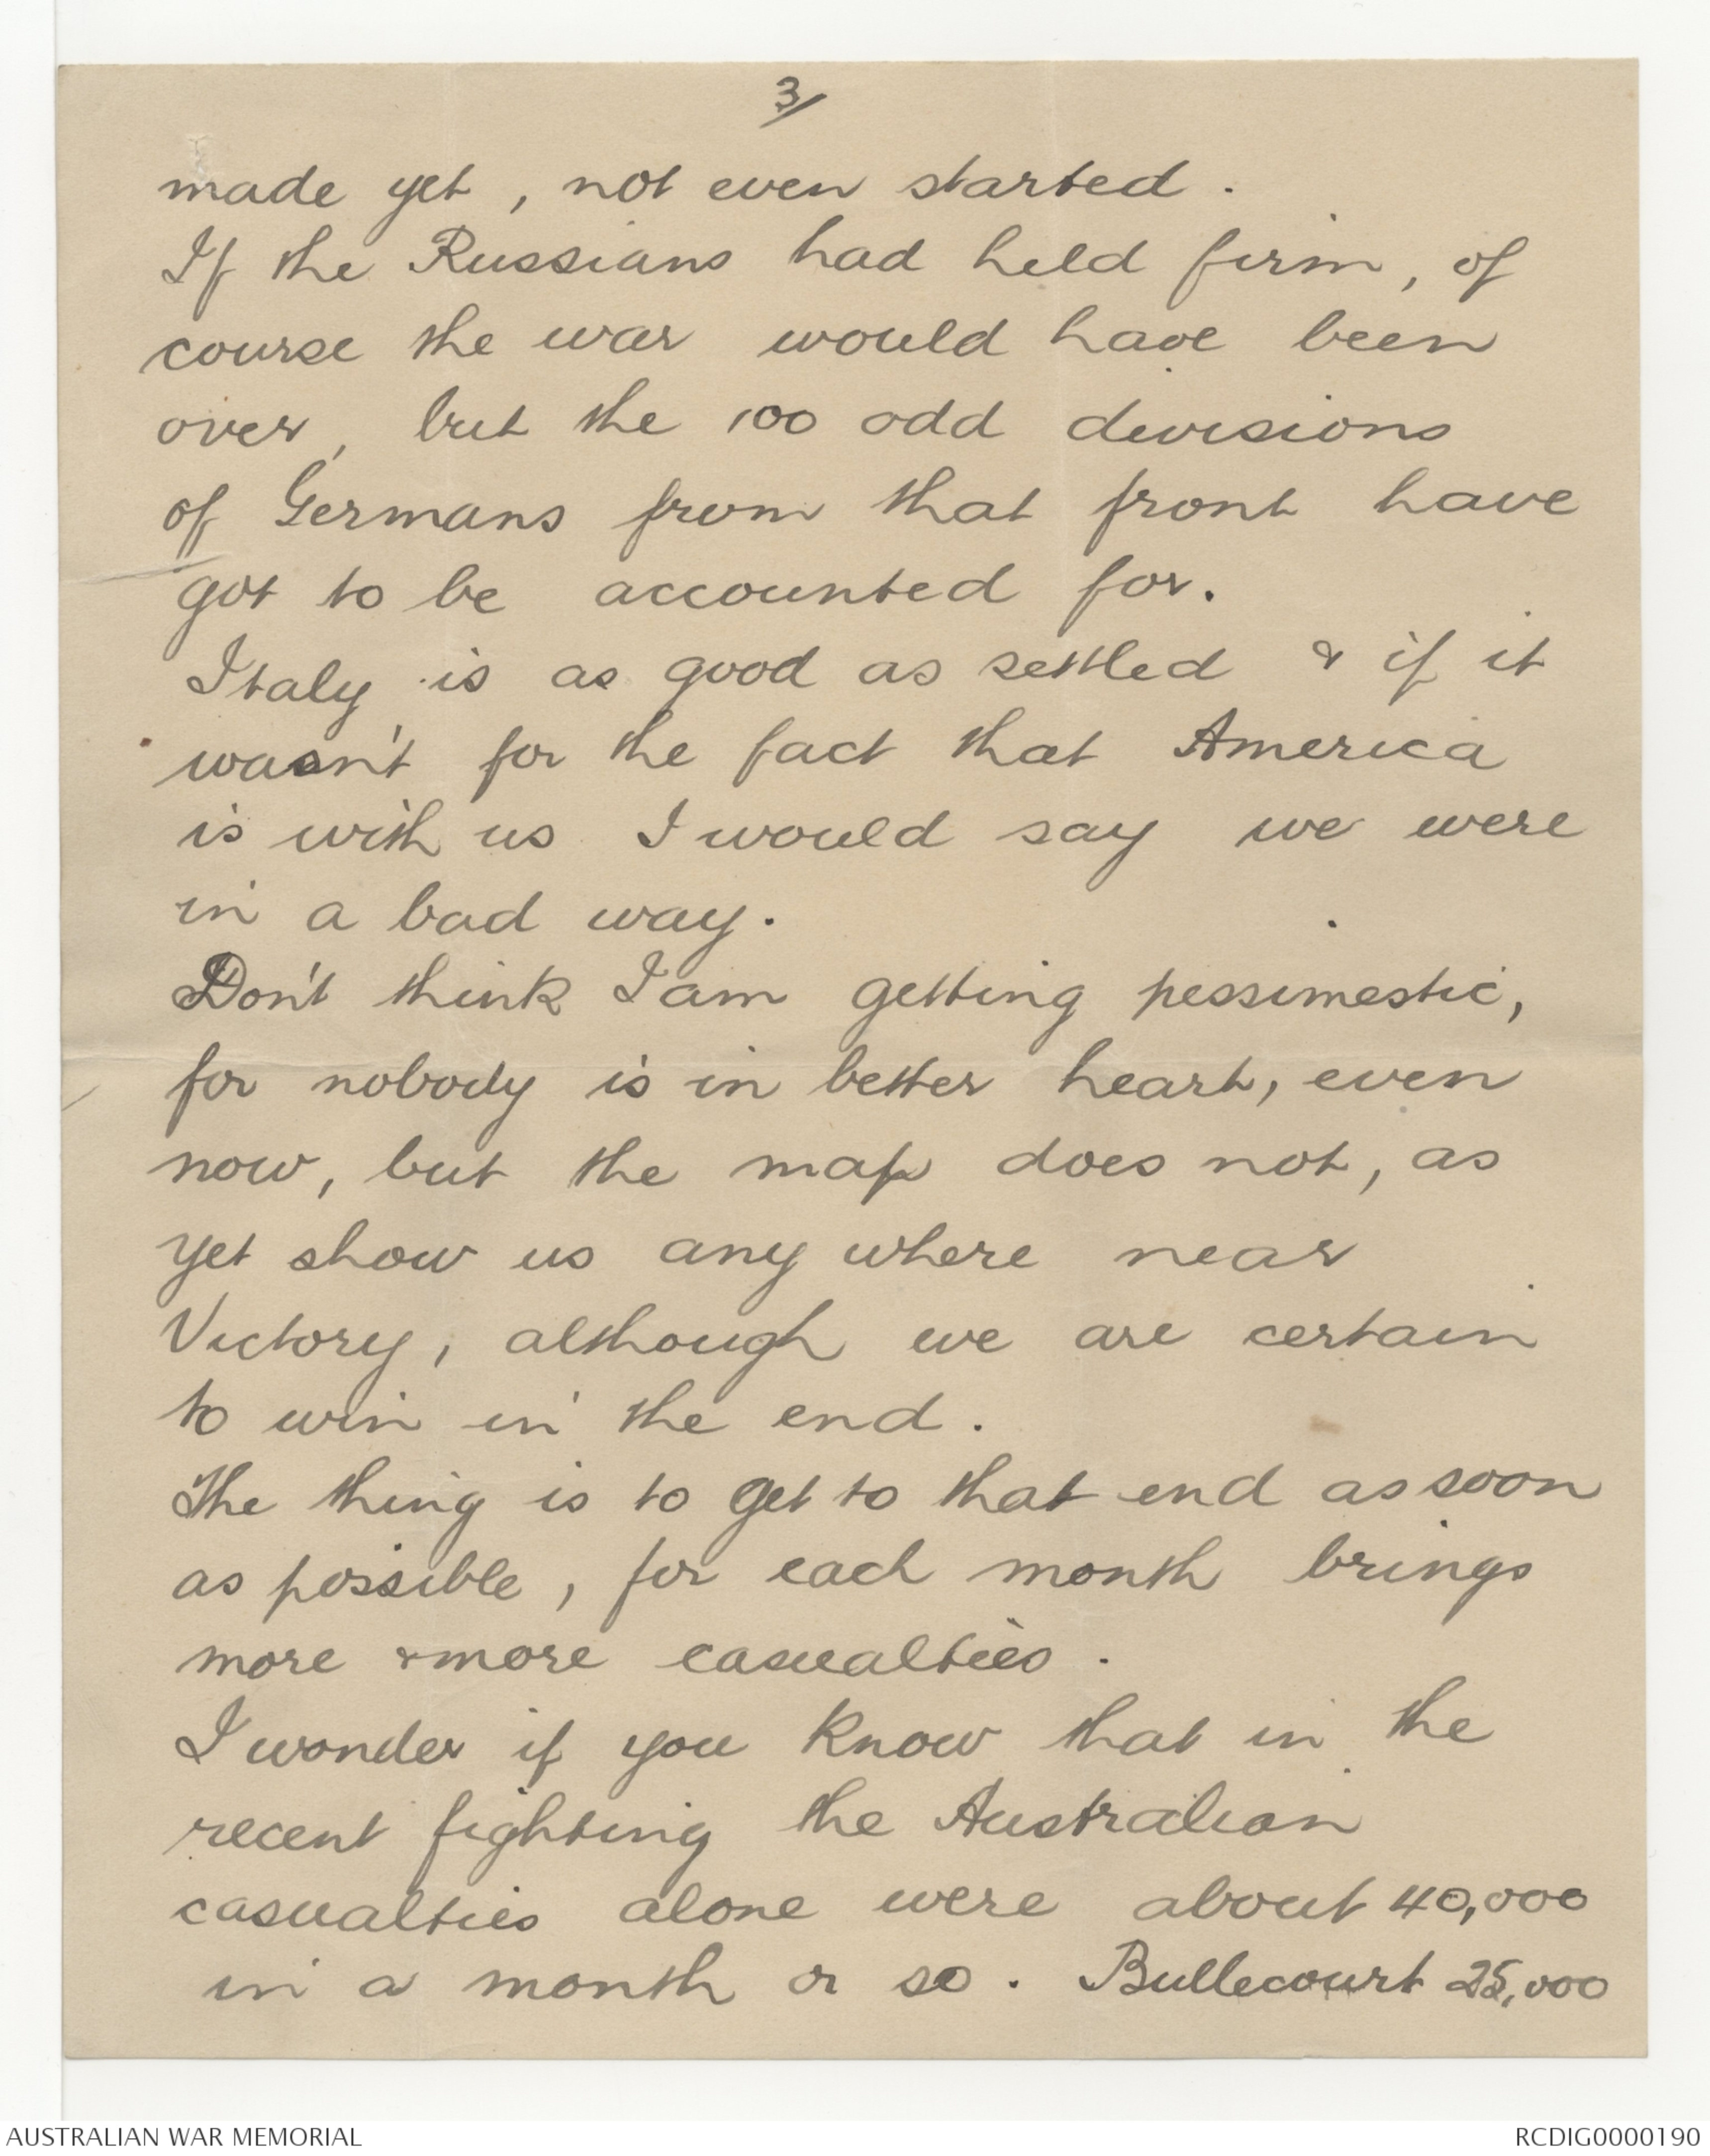 3/
made yet, not even started.
If the Russians had held firm, of
course the war would have been
over, but the 100 odd divisions
of Germans from that front have
got to be accounted for.
Italy is as good as settled & if it
wasn't for the fact that America
is with us I would say we were
in a bad way.
Don't think I am getting pessimestic,
for nobody is in better heart, even
now, but the map does not, as
yet show us any where near
Victory, although we are certain
to win in the end.
The thing is to get to that end as soon
as possible, for each month brings
more & more casualties.
I wonder if you know that in the
recent fighting the Australian
casualties alone were about 40,000
in a month or so. Bullecourt 25,000
AUSTRALIAN WAR MEMORIAL
RCDIG0000190